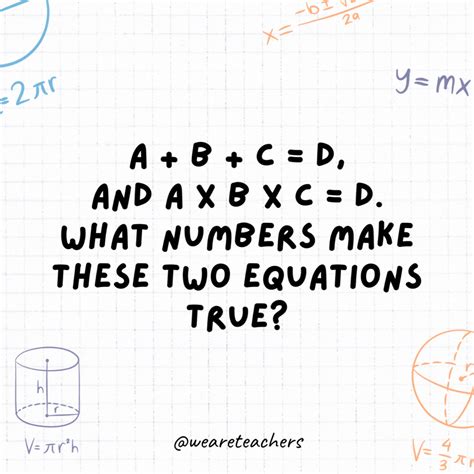 x = -b ± √
2a
= 2πr
y = mx
A + B + C = D,
AND A X B X C = D.
WHAT NUMBERS MAKE
THESE TWO EQUATIONS
TRUE?
h
r
r
V = πr²h
V = 4/3 π
@weareteachers